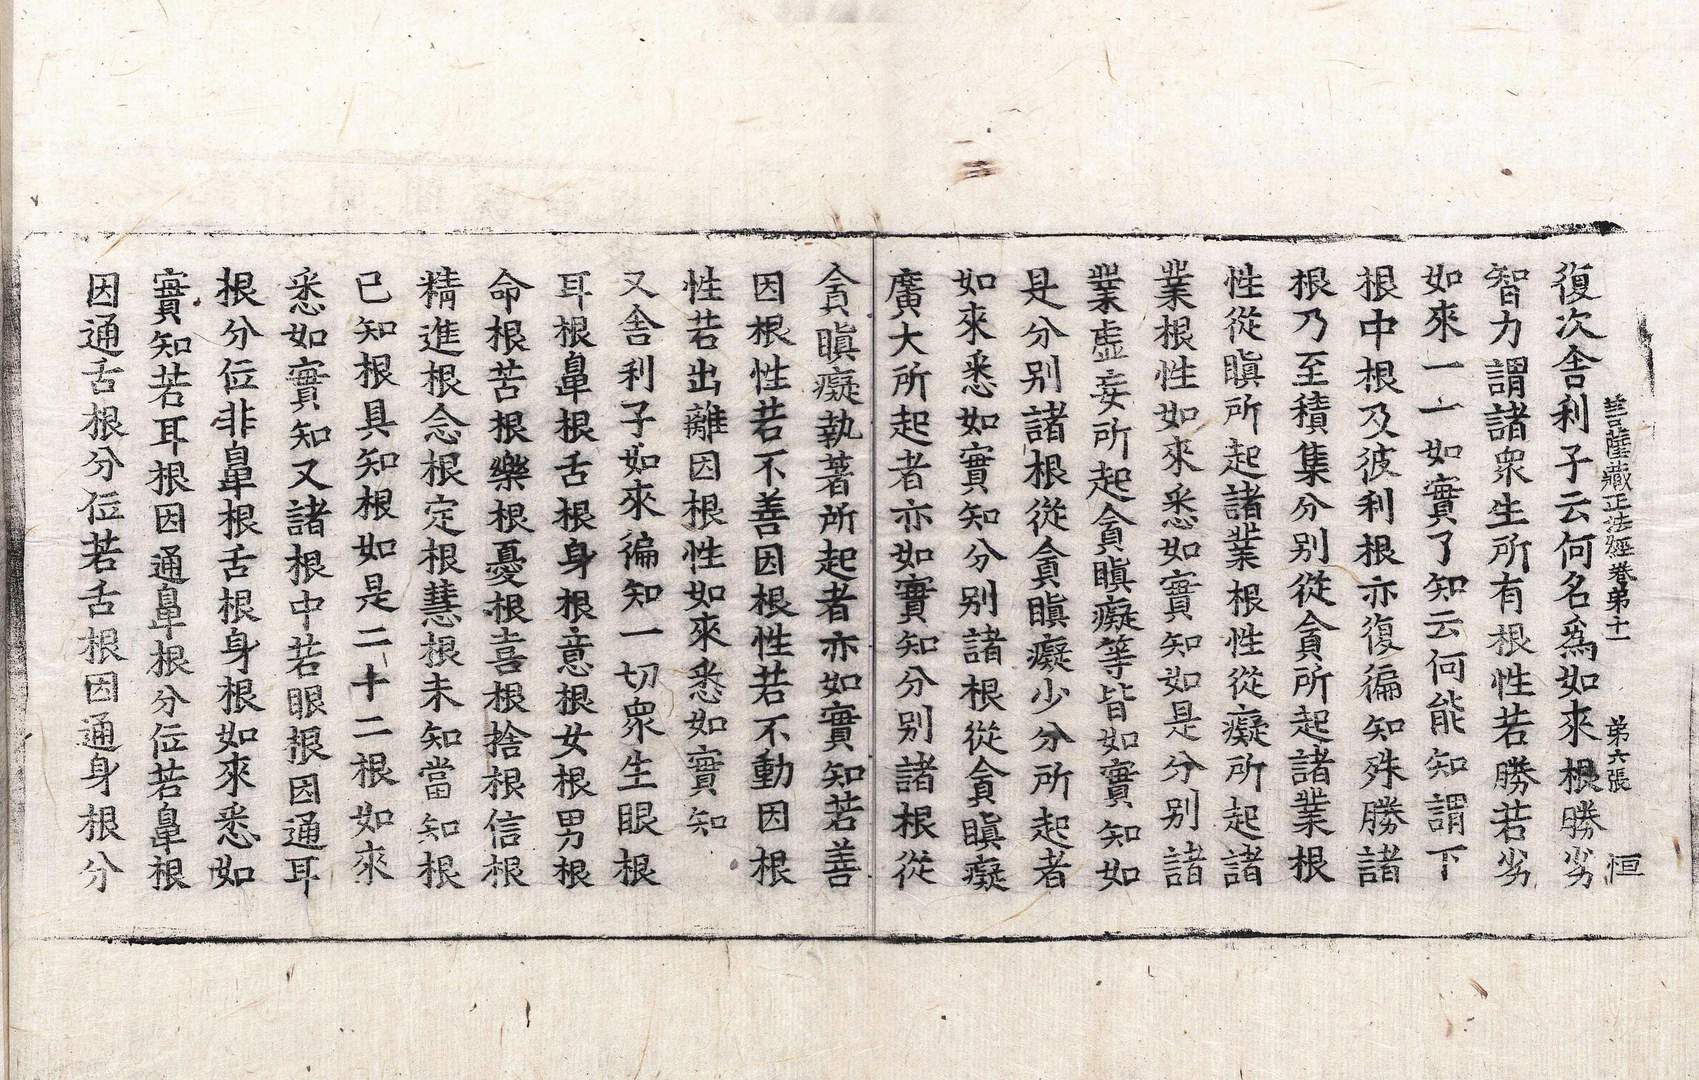 菩薩藏正法經卷第十一 第六張 恒
復次舍利子云何名爲如來根勝劣
智力謂諸衆生所有根性若勝若劣
如來一一如實了知云何能知謂下
根中根及彼利根亦復徧知殊勝諸
根乃至積集分别從貪所起諸業根
性從瞋所起諸業根性從癡所起諸
業根性如來悉如實知如是分别諸
業虛妄所起貪瞋癡等皆如實知如
是分别諸根從貪瞋癡少分所起者
如來悉如實知分别諸根從貪瞋癡
廣大所起者亦如實知分别諸根從
貪瞋癡執著所起者亦如實知若善
因根性若不善因根性若不動因根
性若出離因根性如來悉如實知
又舍利子如來徧知一切衆生眼根
耳根鼻根舌根身根意根女根男根
命根苦根樂根憂根喜根捨根信根
精進根念根定根慧根未知當知根
已知根具知根如是二十二根如來
悉如實知又諸根中若眼根因通耳
根分位非鼻根舌根身根如來悉如
實知若耳根因通鼻根分位若鼻根
因通舌根分位若舌根因通身根分